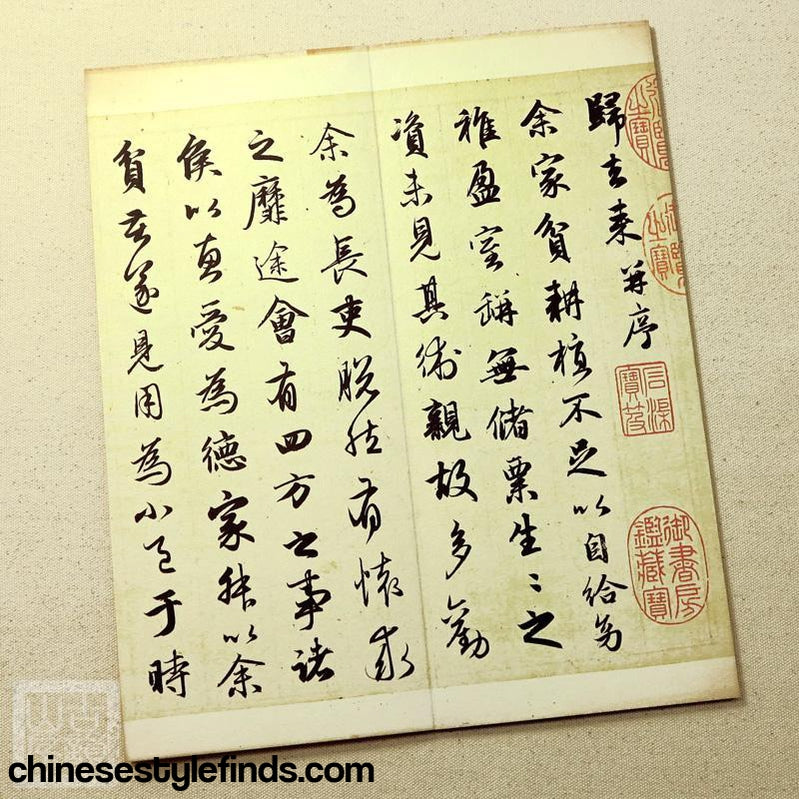 歸去来并序
余家貧耕植不足以自給幼
稚盈室缾無儲粟生〻之
資未見其術親故多勸
余為長吏脫然有懷求
之靡途會有四方之事諸
侯以惠愛為德家叔以余
貧苦遂見用為小邑于時
覽之寶
御覽之寶
石渠寶笈
御書房鑑藏寶
chinesestylefinds.com